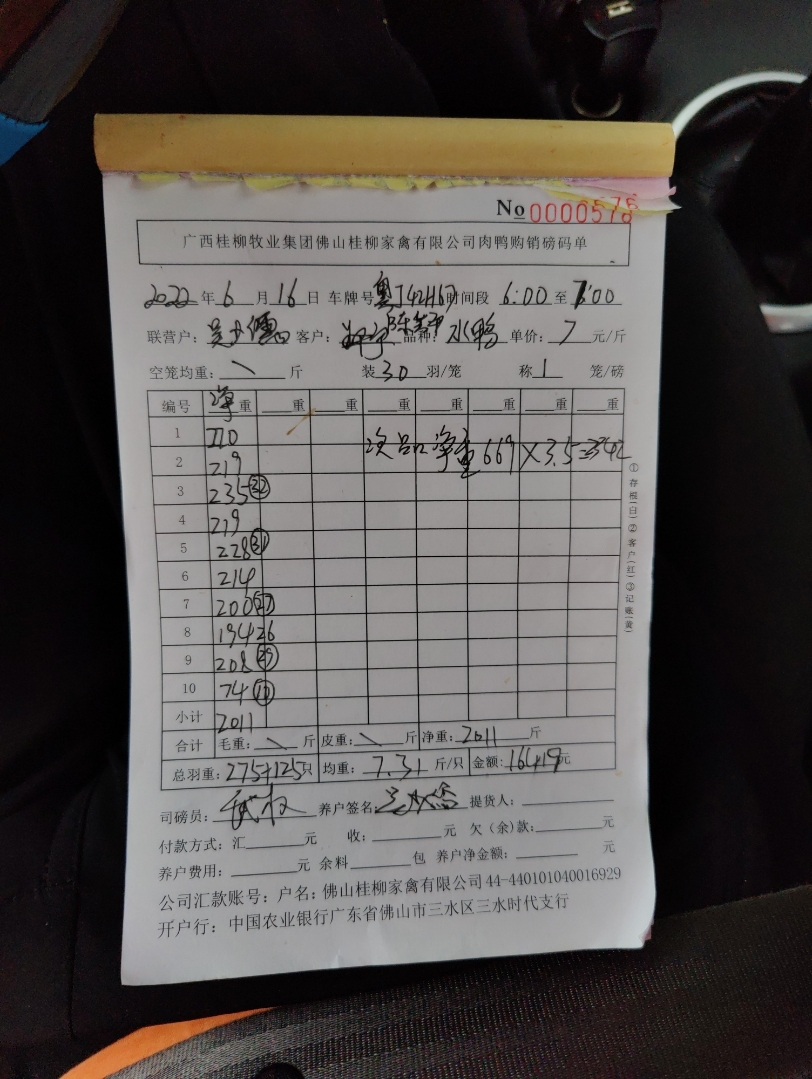 No 0000576
广西桂柳牧业集团佛山桂柳家禽有限公司肉鸭购销磅码单
2022年6月16日 车牌号 粤J42H67 时间段 6:00至7:00
联营户: 客户: 品种: 水鸭 单价: 7 元/斤
空笼均重: \ 斤 装 30 羽/笼 称 1 笼/磅
编号 净重 重 重 重 重 重 重 重
1 220
2 219 次品净重669×3.5=
3 235 32
4 219
5 228 31
6 214
7 200 27
8 194 26
9 208 29
10 74 10
小计 2011
合计 毛重: \ 斤 皮重: \ 斤 净重: 2011 斤
总羽重: 275+125只 均重: 7.31 斤/只 金额: 16419元
司磅员: 养户签名: 提货人:
付款方式: 汇 元 收: 元 欠(余)款: 元
养户费用: 元 余料 包 养户净金额: 元
公司汇款账号: 户名: 佛山桂柳家禽有限公司 44-440101040016929
开户行: 中国农业银行广东省佛山市三水区三水时代支行
①存根(白)②客户(红)③记账(黄)